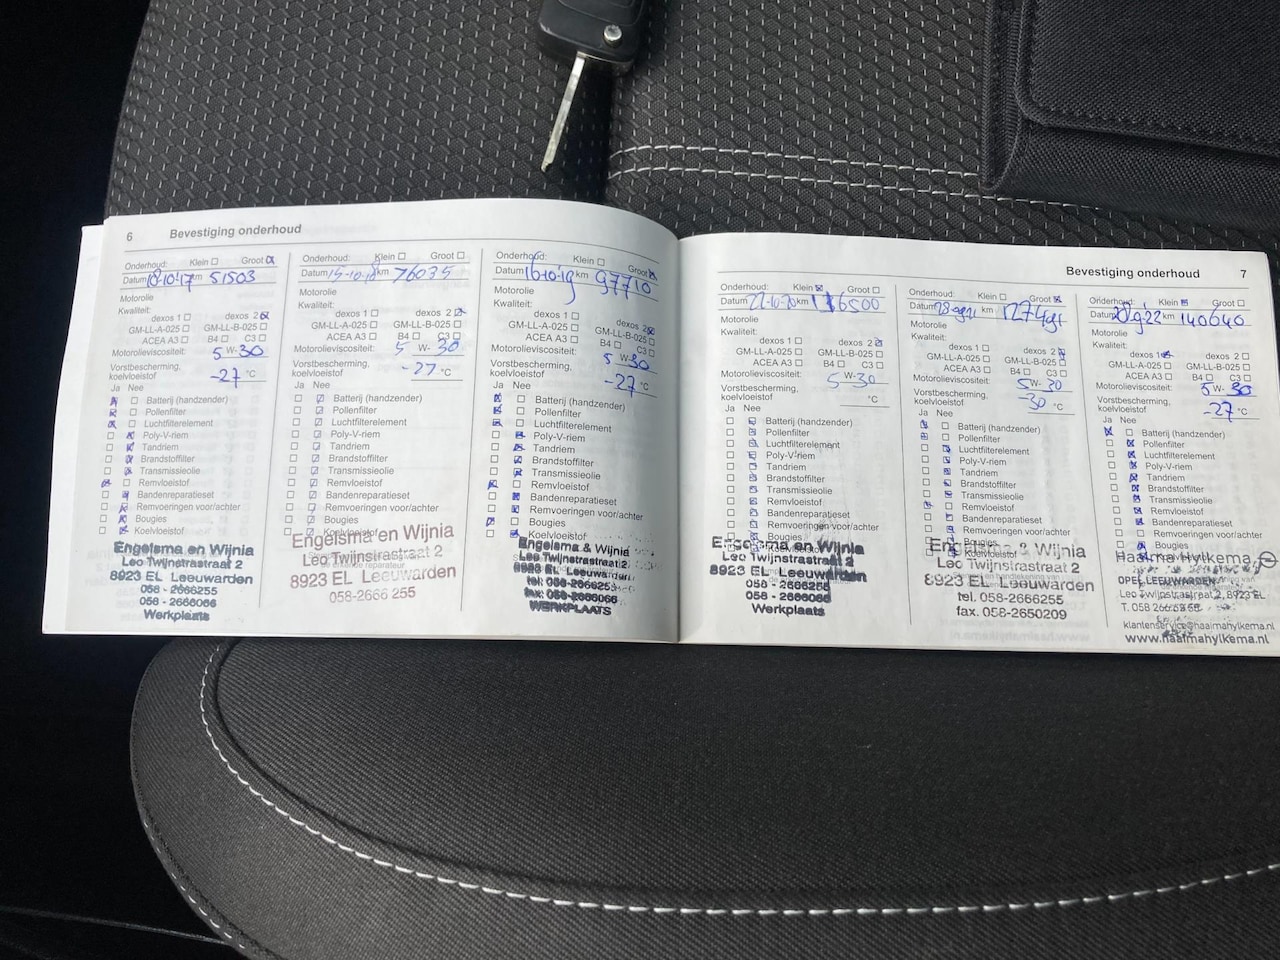 6 Bevestiging onderhoud
Onderhoud: Klein Groot
Datum 18-10-17 km 51503
Motorolie
Kwaliteit:
dexos 1 dexos 2
GM-LL-A-025 GM-LL-B-025
ACEA A3 B4 C3
Motorolieviscositeit: 5 W- 30
Vorstbescherming,
koelvloeistof -27 °C
Ja Nee
Batterij (handzender)
Pollenfilter
Luchtfilterelement
Poly-V-riem
Tandriem
Brandstoffilter
Transmissieolie
Remvloeistof
Bandenreparatieset
Remvoeringen voor/achter
Bougies
Koelvloeistof
Engelsma en Wijnia
Leo Twijnstrastraat 2
8923 EL Leeuwarden
058 - 2666255
058 - 2666066
Werkplaats
Onderhoud: Klein Groot
Datum 15-10-18 km 76035
Motorolie
Kwaliteit:
dexos 1 dexos 2
GM-LL-A-025 GM-LL-B-025
ACEA A3 B4 C3
Motorolieviscositeit: 5 W- 30
Vorstbescherming,
koelvloeistof -27 °C
Ja Nee
Batterij (handzender)
Pollenfilter
Luchtfilterelement
Poly-V-riem
Tandriem
Brandstoffilter
Transmissieolie
Remvloeistof
Bandenreparatieset
Remvoeringen voor/achter
Bougies
Koelvloeistof
Engelsma en Wijnia
Leo Twijnstrastraat 2
8923 EL Leeuwarden
058-2666 255
Onderhoud: Klein Groot
Datum 16-10-19 km 97710
Motorolie
Kwaliteit:
dexos 1 dexos 2
GM-LL-A-025 GM-LL-B-025
ACEA A3 B4 C3
Motorolieviscositeit: 5 W- 30
Vorstbescherming,
koelvloeistof -27 °C
Ja Nee
Batterij (handzender)
Pollenfilter
Luchtfilterelement
Poly-V-riem
Tandriem
Brandstoffilter
Transmissieolie
Remvloeistof
Bandenreparatieset
Remvoeringen voor/achter
Bougies
Koelvloeistof
Engelsma & Wijnia
Leo Twijnstrastraat 2
8923 EL Leeuwarden
tel. 058-2666255
WERKPLAATS
Bevestiging onderhoud 7
Onderhoud: Klein Groot
Datum 22-10-20 km 116500
Motorolie
Kwaliteit:
dexos 1 dexos 2
GM-LL-A-025 GM-LL-B-025
ACEA A3 B4 C3
Motorolieviscositeit: 5 W- 30
Vorstbescherming,
koelvloeistof °C
Ja Nee
Batterij (handzender)
Pollenfilter
Luchtfilterelement
Poly-V-riem
Tandriem
Brandstoffilter
Transmissieolie
Remvloeistof
Bandenreparatieset
Remvoeringen voor/achter
Bougies
Engelsma en Wijnia
Leo Twijnstrastraat 2
8923 EL Leeuwarden
058 - 2666255
058 - 2666066
Werkplaats
Onderhoud: Klein Groot
Datum km
Motorolie
Kwaliteit:
dexos 1 dexos 2
GM-LL-A-025 GM-LL-B-025
ACEA A3 B4 C3
Motorolieviscositeit: 5 W- 30
Vorstbescherming,
koelvloeistof -30 °C
Ja Nee
Batterij (handzender)
Pollenfilter
Luchtfilterelement
Poly-V-riem
Tandriem
Brandstoffilter
Transmissieolie
Remvloeistof
Bandenreparatieset
Remvoeringen voor/achter
Bougies
Engelsma & Wijnia
Leo Twijnstrastraat 2
8923 EL Leeuwarden
tel. 058-2666255
fax. 058-2650209
Onderhoud: Klein Groot
Datum km 140640
Motorolie
Kwaliteit:
dexos 1 dexos 2
GM-LL-A-025 GM-LL-B-025
ACEA A3 B4 C3
Motorolieviscositeit: 5 W- 30
Vorstbescherming,
koelvloeistof -27 °C
Ja Nee
Batterij (handzender)
Pollenfilter
Luchtfilterelement
Poly-V-riem
Tandriem
Brandstoffilter
Transmissieolie
Remvloeistof
Bandenreparatieset
Remvoeringen voor/achter
Bougies
Haaima Hylkema
OPEL LEEUWARDEN
Leo Twijnstrastraat 2, 8923 EL
klantenservice@haaimahylkema.nl
www.haaimahylkema.nl